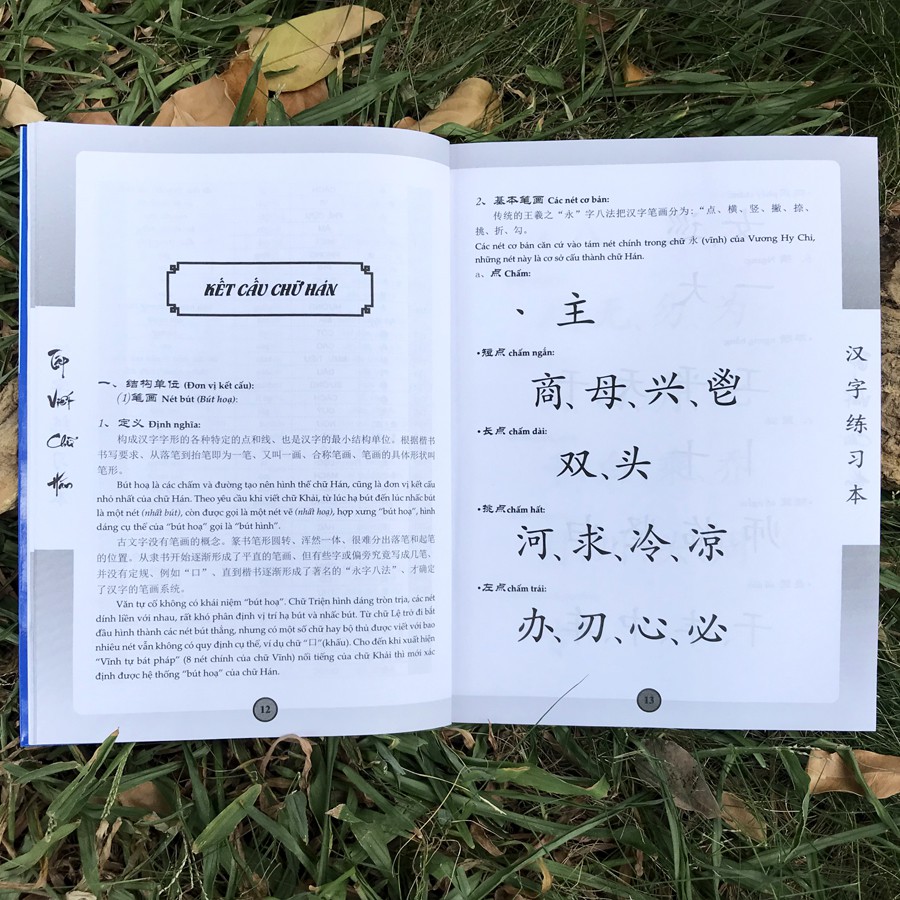 KẾT CẤU CHỮ HÁN
Tập
Viết
Chữ
Hán
一、结构单位 (Đơn vị kết cấu):
(1)笔画 Nét bút (Bút hoạ):
1、定义 Định nghĩa:
构成汉字字形的各种特定的点和线、也是汉字的最小结构单位。根据楷书
书写要求、从落笔到抬笔即为一笔、又叫一画、合称笔画、笔画的具体形状叫
笔形。
Bút hoạ là các chấm và đường tạo nên hình thể chữ Hán, cũng là đơn vị kết cấu
nhỏ nhất của chữ Hán. Theo yêu cầu khi viết chữ Khải, từ lúc hạ bút đến lúc nhấc bút
là một nét (nhất bút), còn được gọi là một nét vẽ (nhất hoạ), hợp xưng "bút hoạ", hình
dáng cụ thể của "bút hoạ" gọi là "bút hình".
古文字没有笔画的概念。篆书笔形圆转、浑然一体、很难分出落笔和起笔
的位置。从隶书开始逐渐形成了平直的笔画、但有些字或偏旁究竟写成几笔、
并没有定规、例如“口”、直到楷书逐渐形成了著名的“永字八法”、才确定
了汉字的笔画系统。
Văn tự cổ không có khái niệm "bút hoạ". Chữ Triện hình dáng tròn trịa, các nét
dính liền với nhau, rất khó phân định vị trí hạ bút và nhấc bút. Từ chữ Lệ trở đi bắt
đầu hình thành các nét bút thẳng, nhưng có một số chữ hay bộ thủ được viết với bao
nhiêu nét vẫn không có quy định cụ thể, ví dụ chữ "口"(khẩu). Cho đến khi xuất hiện
"Vĩnh tự bát pháp" (8 nét chính của chữ Vĩnh) nổi tiếng của chữ Khải thì mới xác
định được hệ thống "bút hoạ" của chữ Hán.
12
2、基本笔画 Các nét cơ bản:
传统的王羲之“永”字八法把汉字笔画分为：“点、横、竖、撇、捺、
挑、折、勾。
Các nét cơ bản căn cứ vào tám nét chính trong chữ 永 (vĩnh) của Vương Hy Chi,
những nét này là cơ sở cấu thành chữ Hán.
a、点 Chấm:
丶 主
•短点 chấm ngắn:
商、母、兴、鬯
•长点 chấm dài:
双、头
•挑点 chấm hất:
河、求、冷、凉
•左点 chấm trái:
办、刃、心、必
13
汉
字
练
习
本